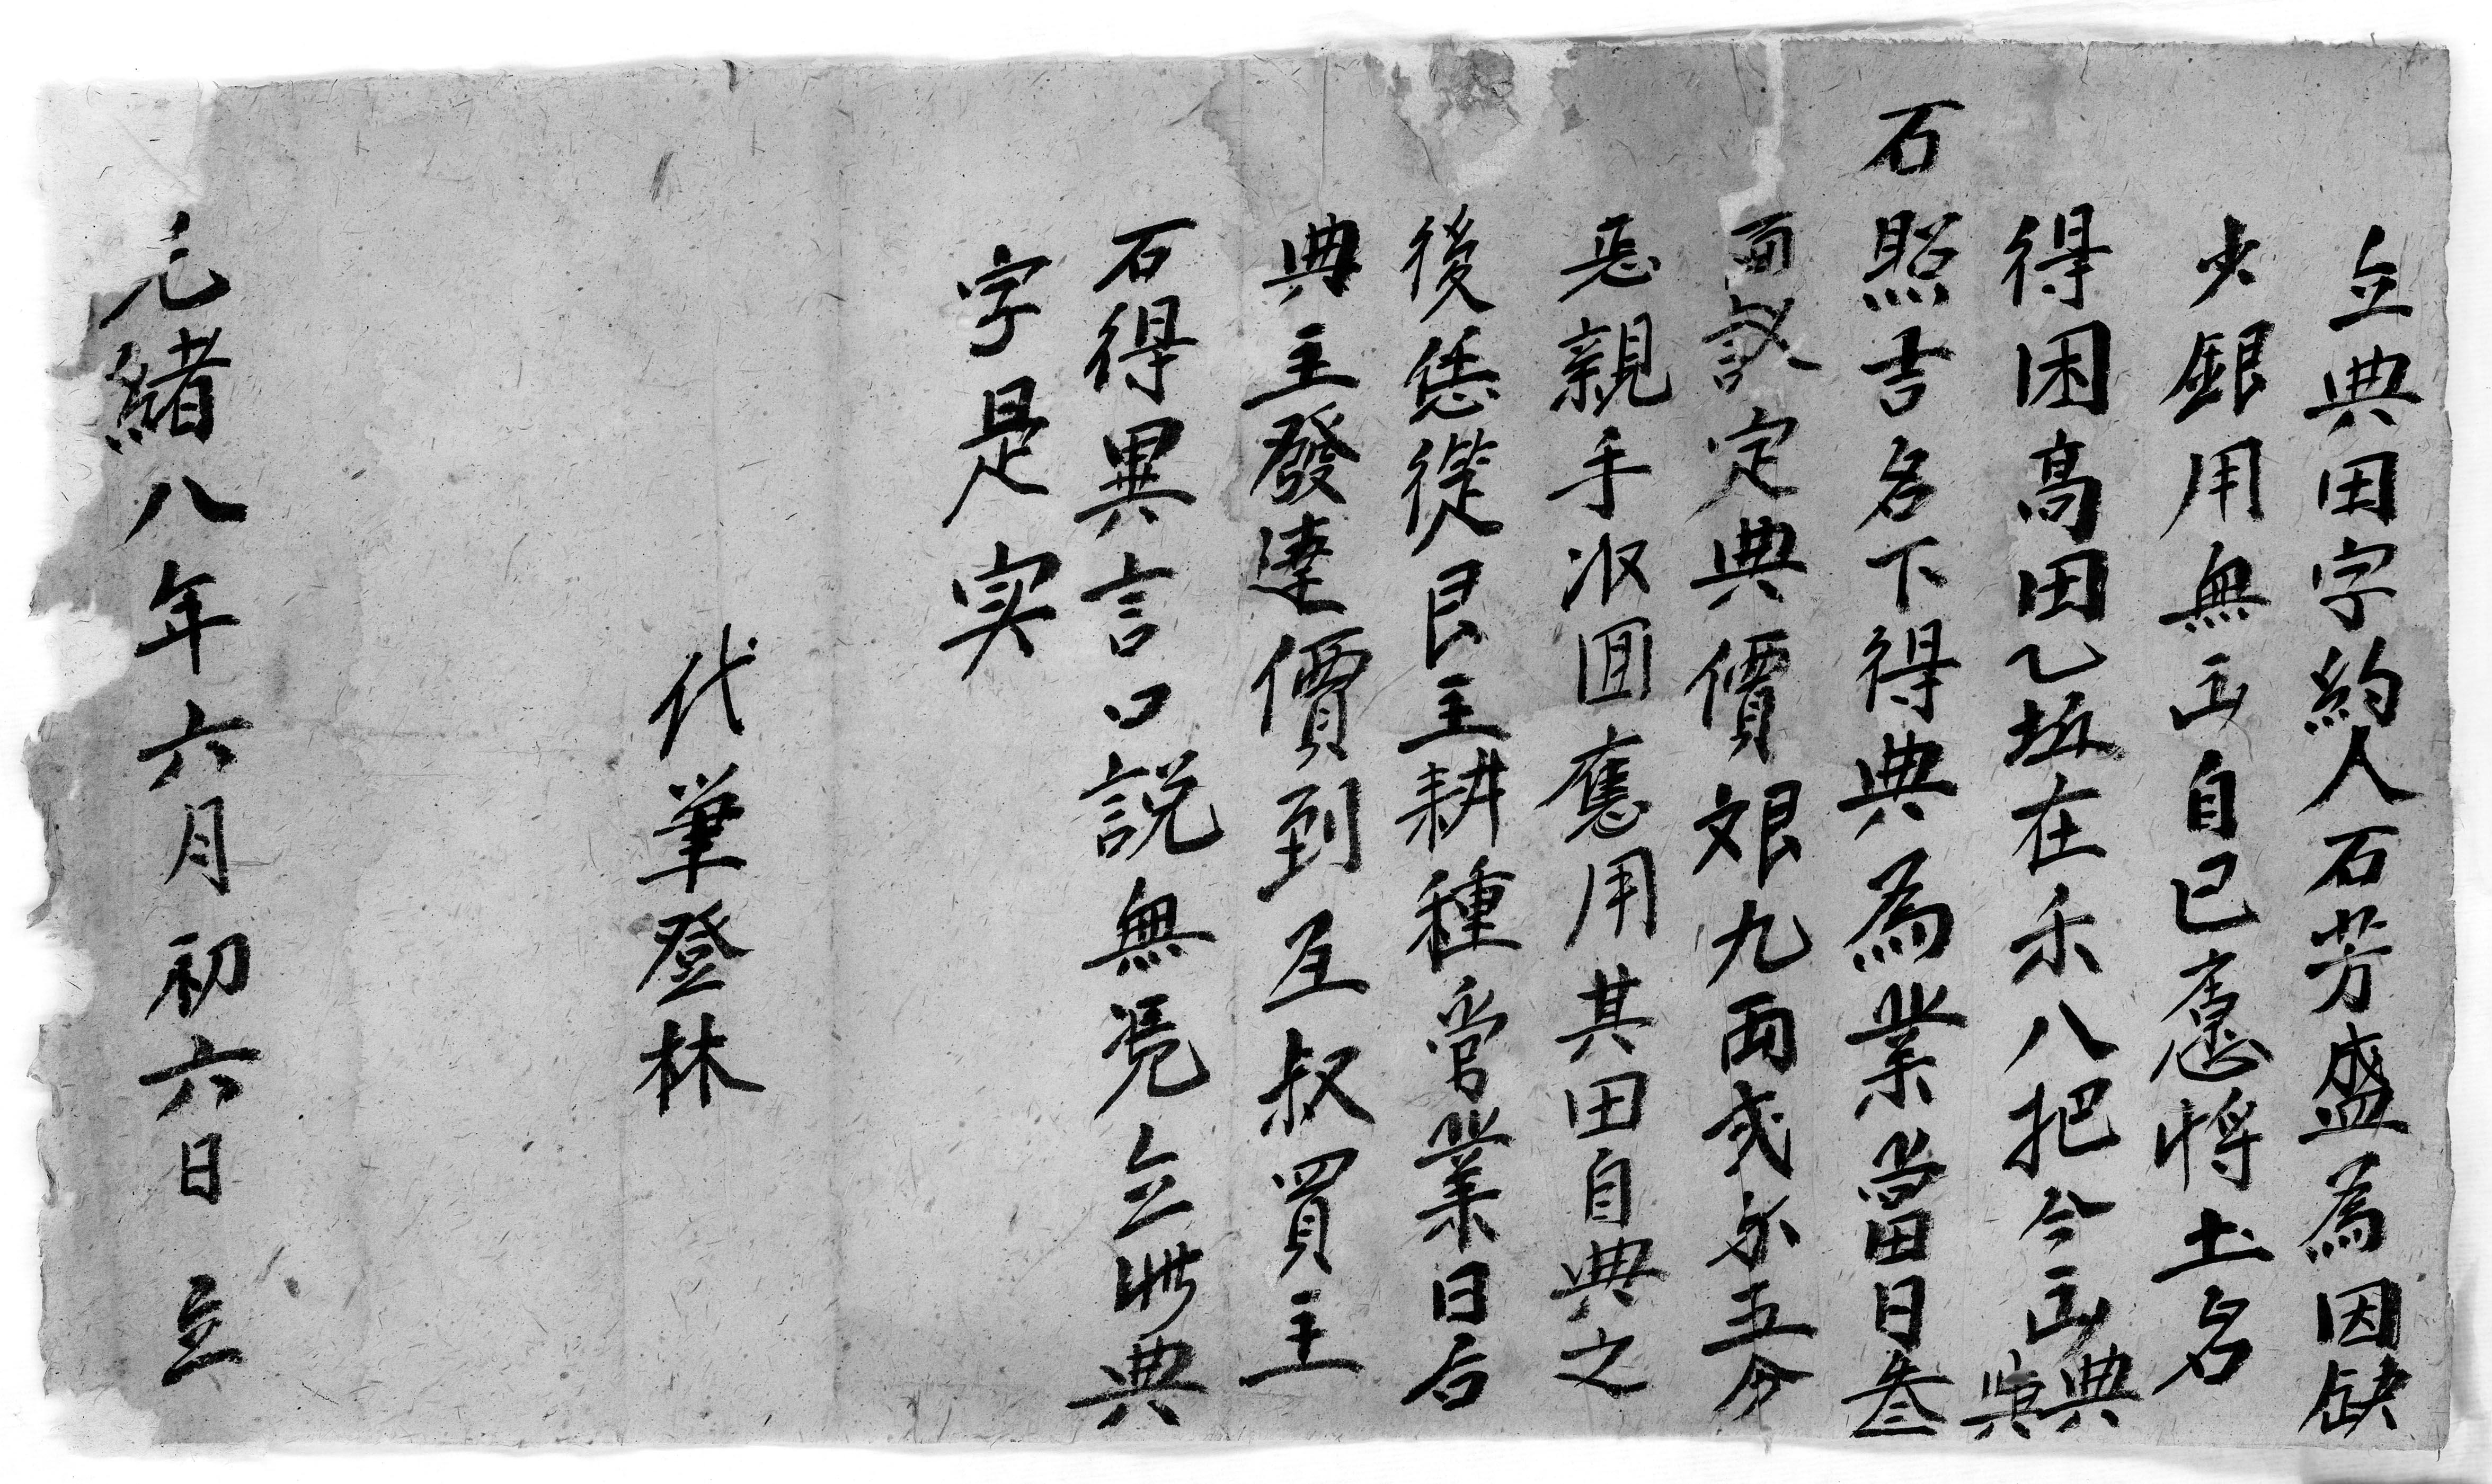 立典田字約人石芳盛為因缺
少銀用無出自已愿将土名
得困高田乙坵在禾八把今出典與
石照吉名下得典為業當日叁
面議定典價艮九両弍分五分
親手收回應用其田自典之
後恁從艮主耕種管業日后
典主發達價到叔買主
石得異言口説無凴立此典
字是实
代筆登林
光緒八年六月初六日 立